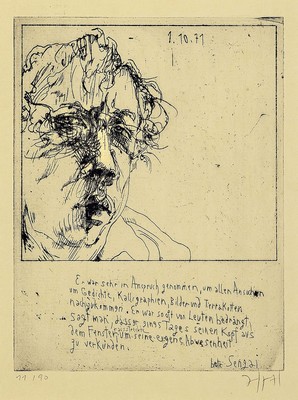 1.10.71
Er war sehr in Anspruch genommen, um allen Ansuchen
um Gedichte, Kalligraphien, Bilder und Terrakotten
nachzukommen. Er war so oft von Leuten bedrängt,
sagt man, dass er eines Tages seinen Kopf aus
dem Fenster um seine eigene Abwesenheit
zu verkünden.
betr. Sengai